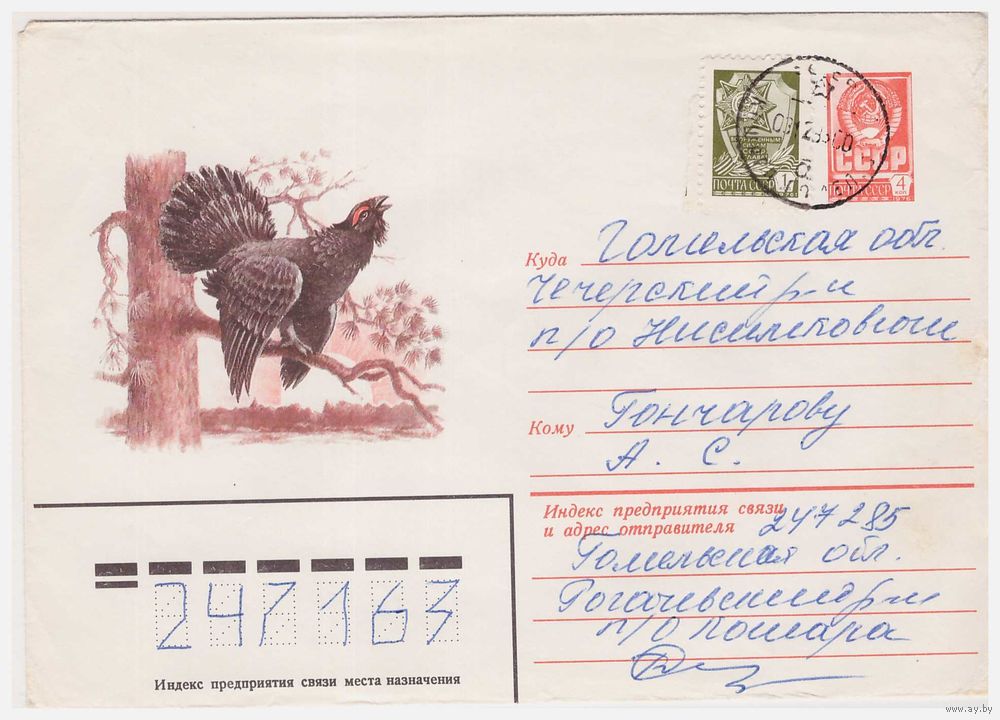 ВООРУЖЕННЫМ
СИЛАМ
СССР
СЛАВА!
ПОЧТА СССР 1
СССР
ПОЧТА СССР 4 КОП
1976
Куда Гомельская обл.
Чечерский р-н
п/о Нисимковичи
Кому Гончарову
А. С.
Индекс предприятия связи
и адрес отправителя 247285
Гомельская обл.
Рогачевский р-н
п/о Кошара
247163
Индекс предприятия связи места назначения
www.ay.by